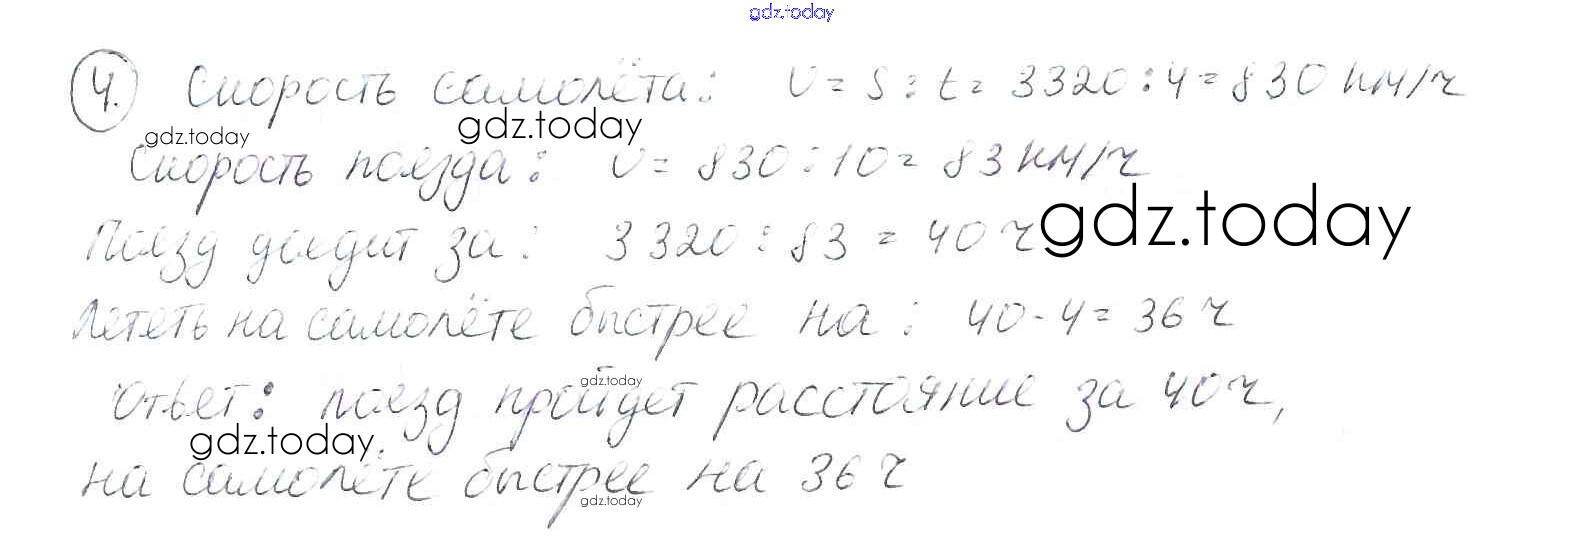 gdz.today
4. Скорость самолёта: v = s : t = 3320 : 4 = 830 км/ч
gdz.today gdz.today
Скорость поезда: v = 830 : 10 = 83 км/ч
gdz.today
Поезд доедит за: 3320 : 83 = 40 ч
Лететь на самолёте быстрее на: 40 - 4 = 36 ч
gdz.today
Ответ: поезд пройдет расстояние за 40 ч,
gdz.today
на самолёте быстрее на 36 ч
gdz.today